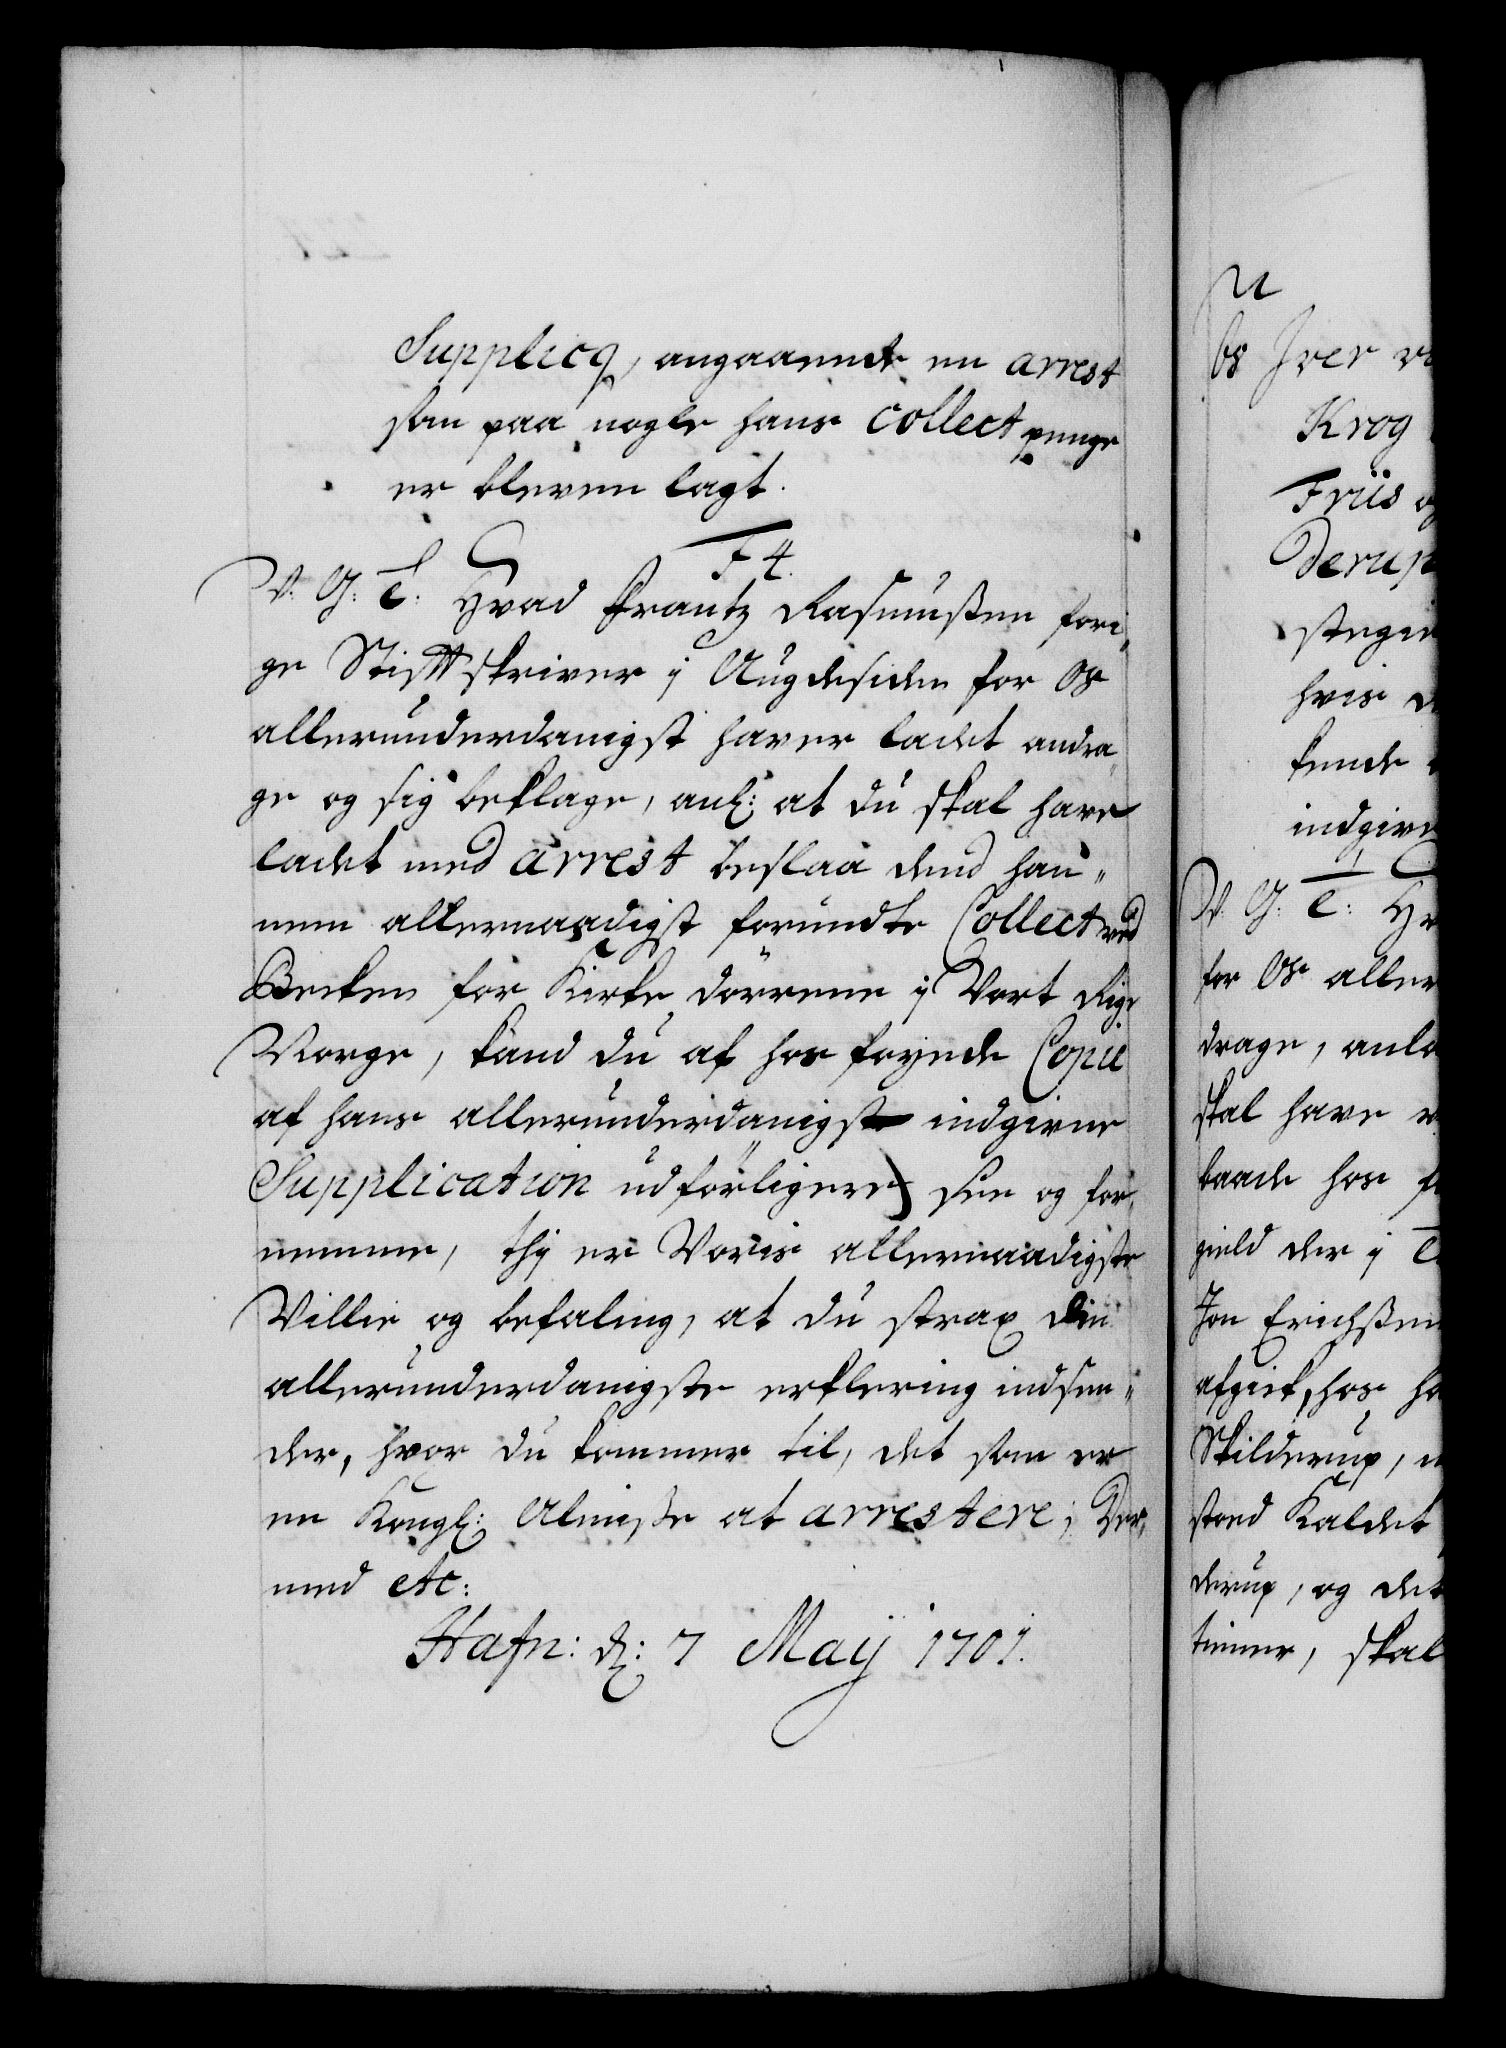 Supplicq, angaaende en arrest
som paa nogle hans Collect penge
er bleven lagt.
F4.
V. G. T: Hvad Frantz Rasmußen fori„
ge Stifftskriver i Augdesiden for Os
allerunderdanigst haver ladet andra„
ge og sig beklage, anl: at du skal have
ladet med arrest beslaa dend han„
nem allernaadigst forundte Collect ved
Becken for Kirke dörrene i Vort Rige
Norge, kand du af hos föyede Copie
af hans allerunderdanigste indgivne
Supplication udförligere see og for„
nemme, thi er Voris allernaadigste
Villie og befaling, at du strax din
allerunderdanigste erklering indsen„
der, hvor du kommer til, det som er
en Kongl: Almiße at arrestere; Der„
med etc:
Hafn: d: 7 Maij 1701.
bs Iver
Krog
Friis
derup
hvis
kende
indgive
V. G. T: Hv
for Os aller
drage, anla
skal have
baade hos
gield der i
Jon Erichßen
afgick, hos ha
Skilderup,
stoed Kaldet
derup, og det
timme, skal